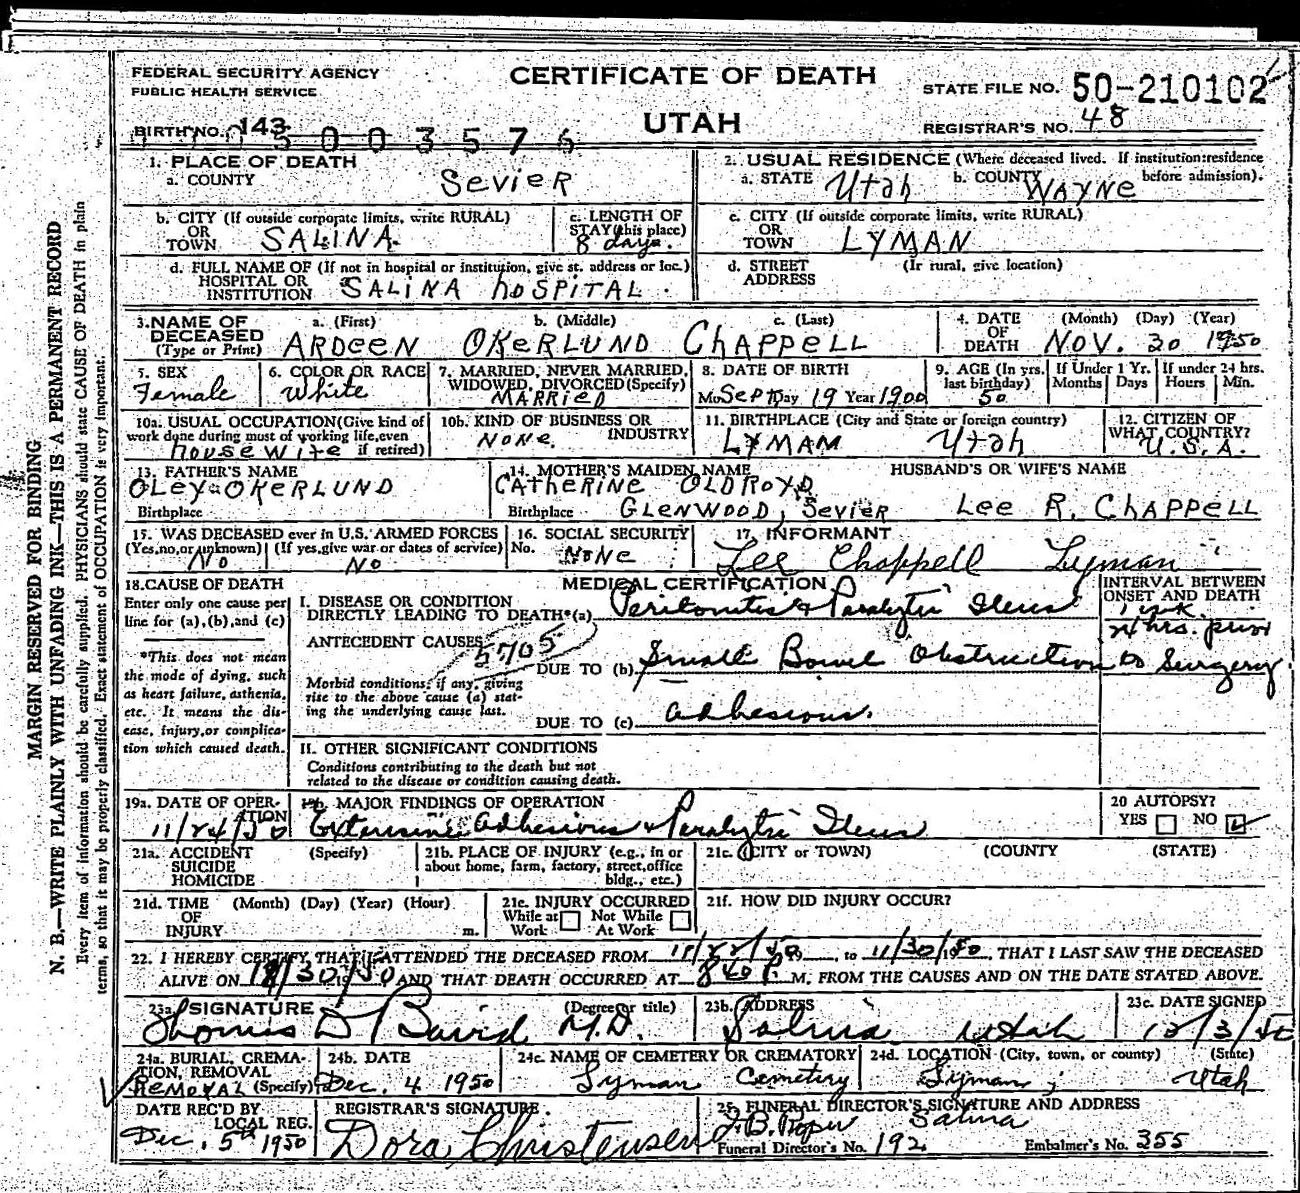 FEDERAL SECURITY AGENCY
PUBLIC HEALTH SERVICE
CERTIFICATE OF DEATH
UTAH
STATE FILE NO. 50-210102
REGISTRAR'S NO. 48
BIRTH NO. 143
003576
1. PLACE OF DEATH
a. COUNTY SEVIER
2. USUAL RESIDENCE (Where deceased lived. If institution:residence before admission).
a. STATE Utah b. COUNTY WAYNE
b. CITY (If outside corporate limits, write RURAL)
OR
TOWN SALINA
c. LENGTH OF
STAY (this place)
8 days.
c. CITY (If outside corporate limits, write RURAL)
OR
TOWN LYMAN
d. FULL NAME OF (If not in hospital or institution, give st. address or loc.)
HOSPITAL OR
INSTITUTION SALINA HOSPITAL
d. STREET (If rural, give location)
ADDRESS
3. NAME OF
DECEASED
(Type or Print)
a. (First) b. (Middle) c. (Last)
ARDEEN OKERLUND CHAPPELL
4. DATE
OF
DEATH
(Month) (Day) (Year)
NOV. 30 1950
5. SEX
Female
6. COLOR OR RACE
White
7. MARRIED, NEVER MARRIED,
WIDOWED, DIVORCED (Specify)
MARRIED
8. DATE OF BIRTH
Mo Sept Day 19 Year 1900
9. AGE (In yrs. last birthday)
50
If Under 1 Yr.
Months Days
If under 24 hrs.
Hours Min.
10a. USUAL OCCUPATION (Give kind of work done during most of working life, even if retired)
housewife
10b. KIND OF BUSINESS OR INDUSTRY
NONE.
11. BIRTHPLACE (City and State or foreign country)
LYMAM Utah
12. CITIZEN OF WHAT COUNTRY?
U.S.A.
13. FATHER'S NAME
OLEY OKERLUND
Birthplace
14. MOTHER'S MAIDEN NAME
CATHERINE OLDROYD
Birthplace GLENWOOD, SEVIER
HUSBAND'S OR WIFE'S NAME
LEE R. CHAPPELL
15. WAS DECEASED ever in U.S. ARMED FORCES
(Yes, no, or unknown) (If yes, give war or dates of service)
No No
16. SOCIAL SECURITY
No. NONE
17. INFORMANT
Lee Chappell Lyman
18. CAUSE OF DEATH
Enter only one cause per line for (a), (b), and (c)
*This does not mean the mode of dying, such as heart failure, asthenia, etc. It means the disease, injury, or complication which caused death.
MEDICAL CERTIFICATION
I. DISEASE OR CONDITION
DIRECTLY LEADING TO DEATH* (a) Peritonitis & Paralytic Ileus
ANTECEDENT CAUSES
5705
DUE TO (b) Small Bowel Obstruction
Morbid conditions, if any, giving rise to the above cause (a) stating the underlying cause last.
DUE TO (c) adhesions.
INTERVAL BETWEEN
ONSET AND DEATH
1 wk.
24 hrs. prior
to Surgery.
II. OTHER SIGNIFICANT CONDITIONS
Conditions contributing to the death but not related to the disease or condition causing death.
19a. DATE OF OPERATION
11/24/50
19b. MAJOR FINDINGS OF OPERATION
Extensive adhesions & Paralytic Ileus
20 AUTOPSY?
YES NO
21a. ACCIDENT (Specify)
SUICIDE
HOMICIDE
21b. PLACE OF INJURY (e.g., in or about home, farm, factory, street, office bldg., etc.)
21c. (CITY or TOWN) (COUNTY (STATE)
21d. TIME (Month) (Day) (Year) (Hour)
OF
INJURY m.
21e. INJURY OCCURRED
While at Work Not While At Work
21f. HOW DID INJURY OCCUR?
22. I HEREBY CERTIFY THAT I ATTENDED THE DECEASED FROM 11/22/50, to 11/30/50, THAT I LAST SAW THE DECEASED
ALIVE ON 11/30/50 AND THAT DEATH OCCURRED AT 840 P. M. FROM THE CAUSES AND ON THE DATE STATED ABOVE.
23a. SIGNATURE (Degree or title)
Thomas D M.D.
23b. ADDRESS
Salina Utah
23c. DATE SIGNED
12/3/50
24a. BURIAL, CREMATION, REMOVAL (Specify)
REMOVAL
24b. DATE
Dec. 4 1950
24c. NAME OF CEMETERY OR CREMATORY
Lyman Cemetery
24d. LOCATION (City, town, or county) (State)
Lyman, Utah
DATE REC'D BY LOCAL REG.
Dec. 5th 1950
REGISTRAR'S SIGNATURE.
Dora Christensen
25. FUNERAL DIRECTOR'S SIGNATURE AND ADDRESS
Salina
Funeral Director's No. 192 Embalmer's No. 355
MARGIN RESERVED FOR BINDING
N. B.—WRITE PLAINLY WITH UNFADING INK—THIS IS A PERMANENT RECORD
Every item of information should be carefully supplied. PHYSICIANS should state CAUSE OF DEATH in plain
terms, so that it may be properly classified. Exact statement of OCCUPATION is very important.